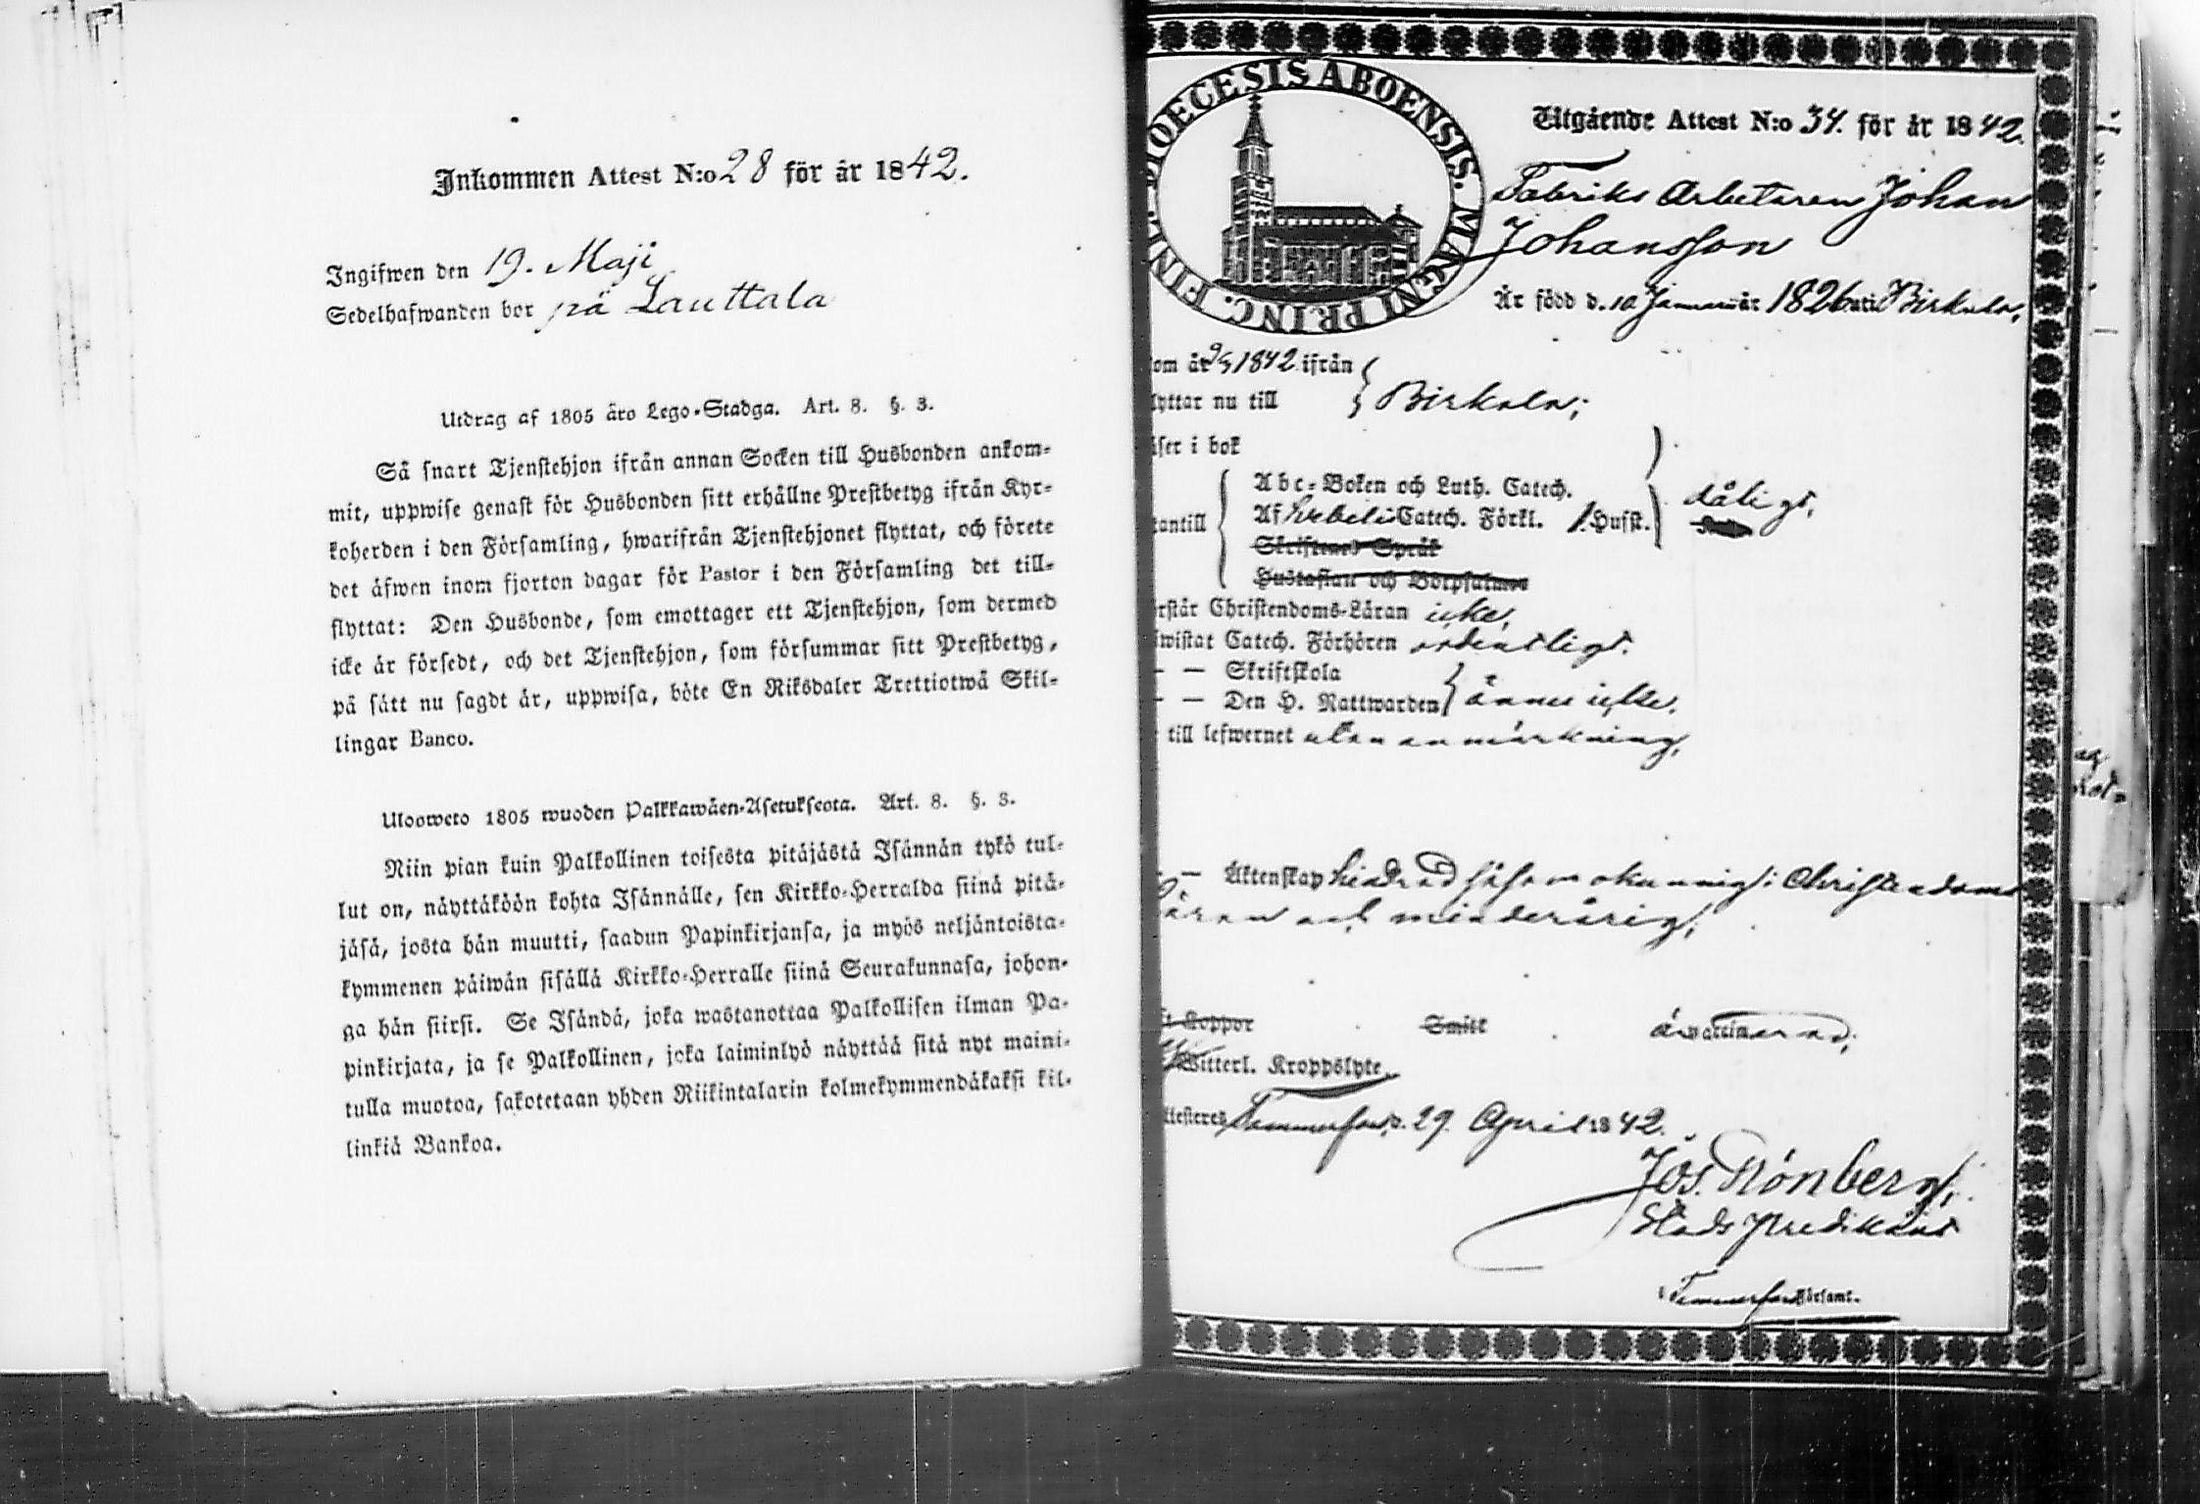 Inkommen Attest N:o 28 för år 1842.
Ingifwen den 19. Maji
Sedelhafwanden bor på Lauttala
Utdrag af 1805 års Lego-Stadga. Art. 8. §. 3.
Så snart Tjenstehjon ifrån annan Socken till Husbonden ankom-
mit, uppwise genast för Husbonden sitt erhållne Prestbetyg ifrån Kyr-
koherden i den Församling, hwarifrån Tjenstehjonet flyttat, och förete
det äfwen inom fjorton dagar för Pastor i den Församling det till-
flyttat: Den Husbonde, som emottager ett Tjenstehjon, som dermed
icke är försedt, och det Tjenstehjon, som försummar sitt Prestbetyg,
på sätt nu sagdt är, uppwisa, böte En Riksdaler Trettiotwå Skil-
lingar Banco.
Uloosweto 1805 wuoden Palkkawäen-Asetuksesta. Art. 8. §. 3.
Niin pian kuin Palkollinen toisesta pitäjästä Isännän tykö tul-
lut on, näyttäköön kohta Isännälle, sen Kirkko-Herralda siinä pitä-
jäsä, josta hän muutti, saadun Papinkirjansa, ja myös neljäntoista-
kymmenen päiwän sisällä Kirkko-Herralle siinä Seurakunnasa, johon-
ga hän siirsi. Se Isändä, joka wastanottaa Palkollisen ilman Pa-
pinkirjata, ja se Palkollinen, joka laiminlyö näyttää sitä nyt maini-
tulla muotoa, sakotetaan yhden Riikintalarin kolmekymmendäkaksi kil-
linkiä Bankoa.
DIOECESIS ABOENSIS. MAGNI PRINC. FINL.
Utgående Attest N:o 34. för år 1842.
Fabriks Arbetaren Johan
Johansson
Är född d. 10 Januari år 1826 uti Birkala,
om år 1842 ifrån
lyttar nu till Birkala;
äser i bok
Abc-Boken och Luth. Catech. dåligt,
tantill Af Svebelii Catech. Förkl. 1. Hufst.
Skriftenes Språk
Hustaflan och Botpsalmer
rstår Christendoms-Läran icke,
wistat Catech. Förhören ordentligt.
— — Skriftskola
— — Den H. Nattwarden ännu icke.
till lefwernet utan anmärkning,
— Äktenskap hindrad såsom okunnig i Christendoms
Läran och minderårig;
t Koppor Smitt är vaccinerad;
Witterl. Kroppslyte
ttesteres Tammerfors d. 29 April 1842.
Jos. Rönberg,
Stads Predikant
i Tammerfors Församl.